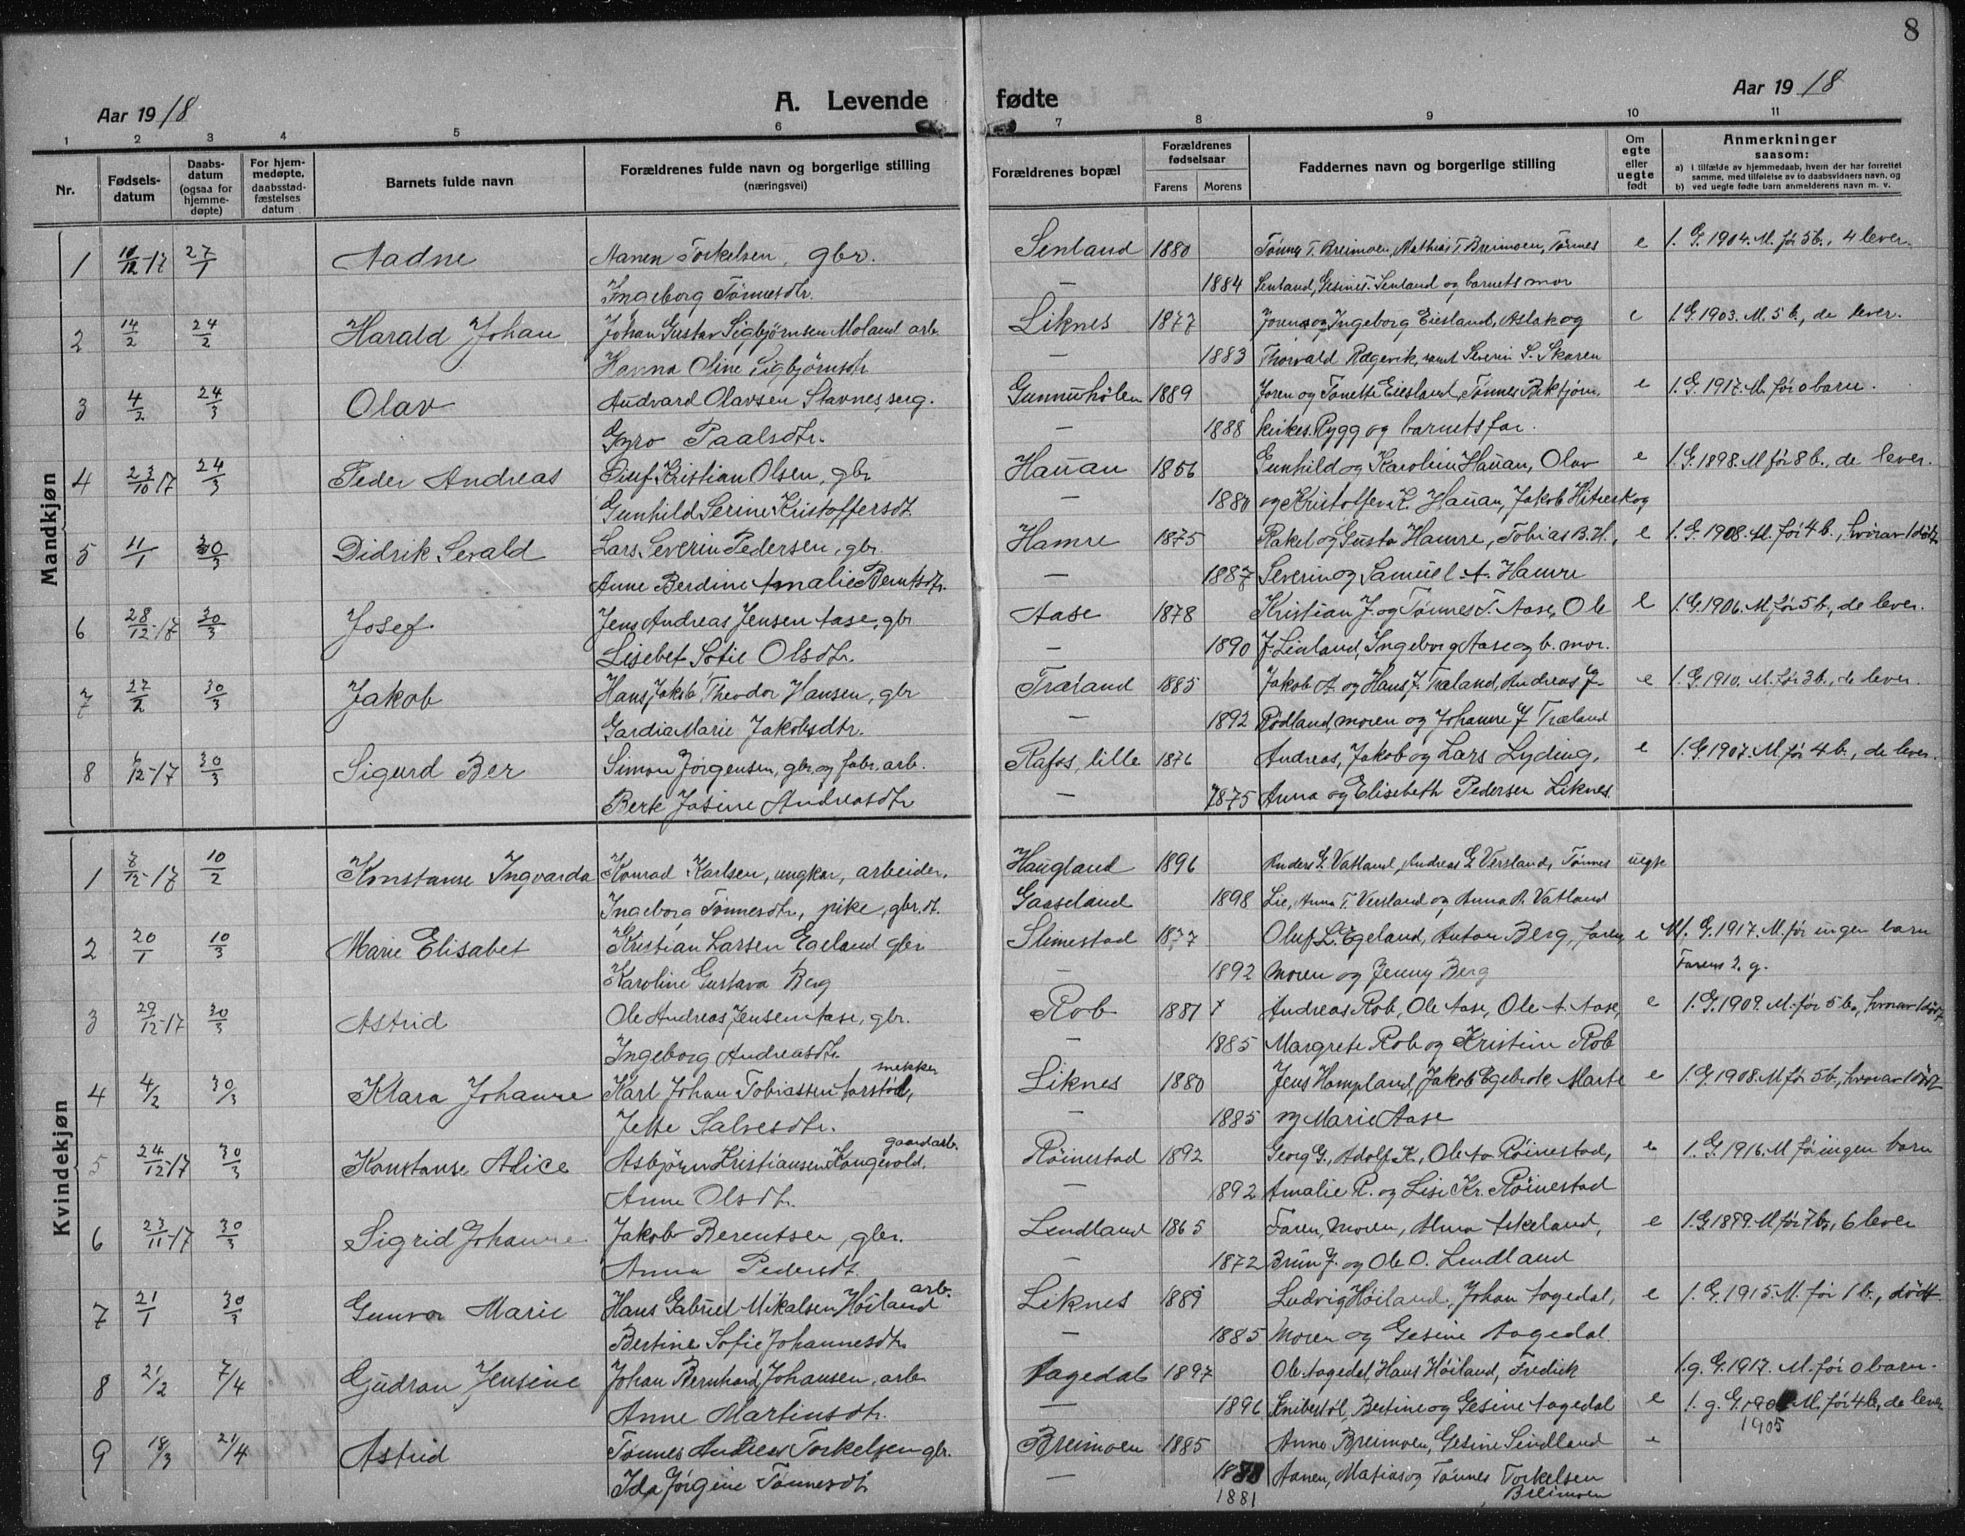 8
Aar 1918
A. Levende fødte
Aar 1918
1 2 3 4 5 6 7 8 9 10 11
Nr.
Fødsels-
datum
Daabs-
datum
(ogsaa for
hjemme-
døpte)
For hjem-
medøpte,
daabsstad-
fæstelses
datum
Barnets fulde navn
Forældrenes fulde navn og borgerlige stilling
(næringsvei)
Forældrenes bopæl
Forældrenes
fødselsaar
Farens Morens
Faddernes navn og borgerlige stilling
Om
egte
eller
uegte
født
Anmerkninger
saasom:
a) i tilfælde av hjemmedaab, hvem der har forrettet
samme, med tilføielse av to daabsvidners navn, og
b) ved uegte fødte barn anmelderens navn m. v.
Mandkjøn
1 10/12-17 27/1 Aadne Aanen Torkelsen, gbr. Senland 1880 Tønnes T. Breimoen, Mathias T. Breimoen, Tønnes e 1. G. 1904. M. før 5 b., 4 lever.
Ingeborg Tønnesdtr. — 1884 Senland, Gesine T. Senland og barnets mor
2 14/2 24/2 Harald Johan Johan Gustav Sigbjørnsen Moland arb. Liknes 1877 Jonas og Ingeborg Eiesland, Aslak og e 1. G. 1903. M. 5 b., de lever.
Hanna Oline Sigbjørnsdtr — 1883 Thorvald Rægevik, samt Severin S. Skaren
3 4/2 24/3 Olav Andvard Olavsen Stavnes, serg. Gunnuhølen 1889 Joren og Tonette Eiesland, Tønnes Birktjørn, e 1. G. 1917. M. før 0 barn.
Gyro Paalsdtr. — 1888 kirkes. Rygg og barnets far.
4 23/10 17 24/3 Peder Andreas Oluf Kristian Olsen, gbr Hauan 1856 Gunhild og Karolin Hauan, Olav e 1. G. 1898. M før 8 b., de lever.
Gunhild Serine Kristoffersdt. — 1880 og Kristoffer K. Hauan, Jakob Hitresk og
5 11/1 30/3 Didrik Sevald Lars Severin Pedersen, gbr. Hamre 1875 Rakel og Gusta Hamre, Tobias B. H., e 1. G. 1908. M. før 4 b., hvorav 1 død
Anne Berdine Amalie Berntsdtr. — 1887 Severin og Samuel A. Hamre
6 28/12-17 30/3 Josef. Jens Andreas Jensen Aase, gbr Aase 1878 Kristian J. og Tønnes T. Aase, Ole e 1. G. 1906. M. før 5 b., de lever.
Lisebet Sofie Olsdtr. — 1890 J. Linland, Ingeborg Aase og b. mor.
7 27/2 30/3 Jakob Hans Jakob Theodor Hansen, gbr Træland 1885 Jakob A. og Hans J. Træland, Andreas J. e 1. G. 1910. M. før 3 b., de lever.
Gardia Marie Jakobsdtr. — 1892 Rødland, moren og Johanne J Træland
8 6/12-17 30/3 Sigurd Ber Simon Jørgensen, gbr. og fabr. arb. Rafos, lille 1876 Andreas, Jakob og Lars Lyding, e 1. G. 1907. M. før 4 b., de lever.
Berte Josine Andreasdtr — 1875 Anna og Elisebeth Pedersen Liknes.
Kvindekjøn
1 8/12-17 10/2 Konstanse Ingvarda Konrad Karlsen, ungkar, arbeider. Haugland 1896 Anders G. Vatland, Andreas G. Versland, Tønnes uegte
Ingeborg Tønnesdtr, pike, gbr. dt. Gaaseland 1898 Lie, Anna T. Versland og Anna A. Vatland
2 20/1 10/3 Marie Elisabet Kristian Larsen Egeland gbr Slimestad 1877 Oluf L. Egeland, Anton Berg, faren, e M. 1. G. 1917. M. før ingen barn
Karoline Gustava Berg — 1892 moren og Jenny Berg Farens 2. g.
3 29/12-17 30/3 Astrid Ole Andreas Jensen Aase, gbr. Rob 1881 Andreas Rob, Ole Aase, Ole A. Aase, e 1. G. 1909. M. før 5 b., hvorav 1 død
Ingeborg Andreasdtr. — 1885 Margrete Rob og Kristine Rob
4 4/2 30/3 Klara Johanne Karl Johan Tobiassen Aarstøl, snekker Liknes 1880 Jens Hompland, Jakob Egebrok, Marte e 1. G. 1908. M før 5 b., hvorav 1 død
Jette Salvesdtr. — 1885 og Marie Aase
5 24/12-17 30/3 Konstanse Alice Asbjørn Kristiansen Kongevold, gaardarb. Røinestad 1892 Georg G., Adolf K., Ole A. Røinestad, e 1. G. 1916. M før ingen barn
Anne Olsdt. — 1892 Amalie R. og Lise Kr. Røinestad
6 23/11-17 30/3 Sigrid Johanne Jakob Berentsen, gbr. Lendland 1865 Faren, moren, Alma Askeland, e 1. G. 1899. M før 7 b., 6 lever
Anna Pedersdt. — 1872 Brun J. og Ole O. Lendland
7 21/1 30/3 Gunvor Marie Hans Gabriel Mikalsen Høiland arb. Liknes 1889 Ludvig Høiland, Johan Aagedal, e 1. G. 1915. M. før 1 b., dødt.
Bertine Sofie Johannesdtr. — 1885 Moren og Gesine Aagedal.
8 21/2 7/4 Gudrun Jensine Johan Bernhard Johansen, arb Aagedal 1897 Ole Aagedal, Hans Høiland, Fredrik 1. g. G. 1917. M. før 0 barn.
Anne Martinsdtr. — 1896 Knibestøl, Bertine og Gesine Aagedal e 1. g. G. 190 M. før 4 b., de lever
1905
9 18/3 21/4 Astrid Tønnes Andreas Torkelsen gbr. Breimoen 1885 Anna Breimoen, Gesine Sindland e
Ida Jørgine Tønnesdt — 1881 Aanen, Matias og Tønnes Torkelsen
Breimoen